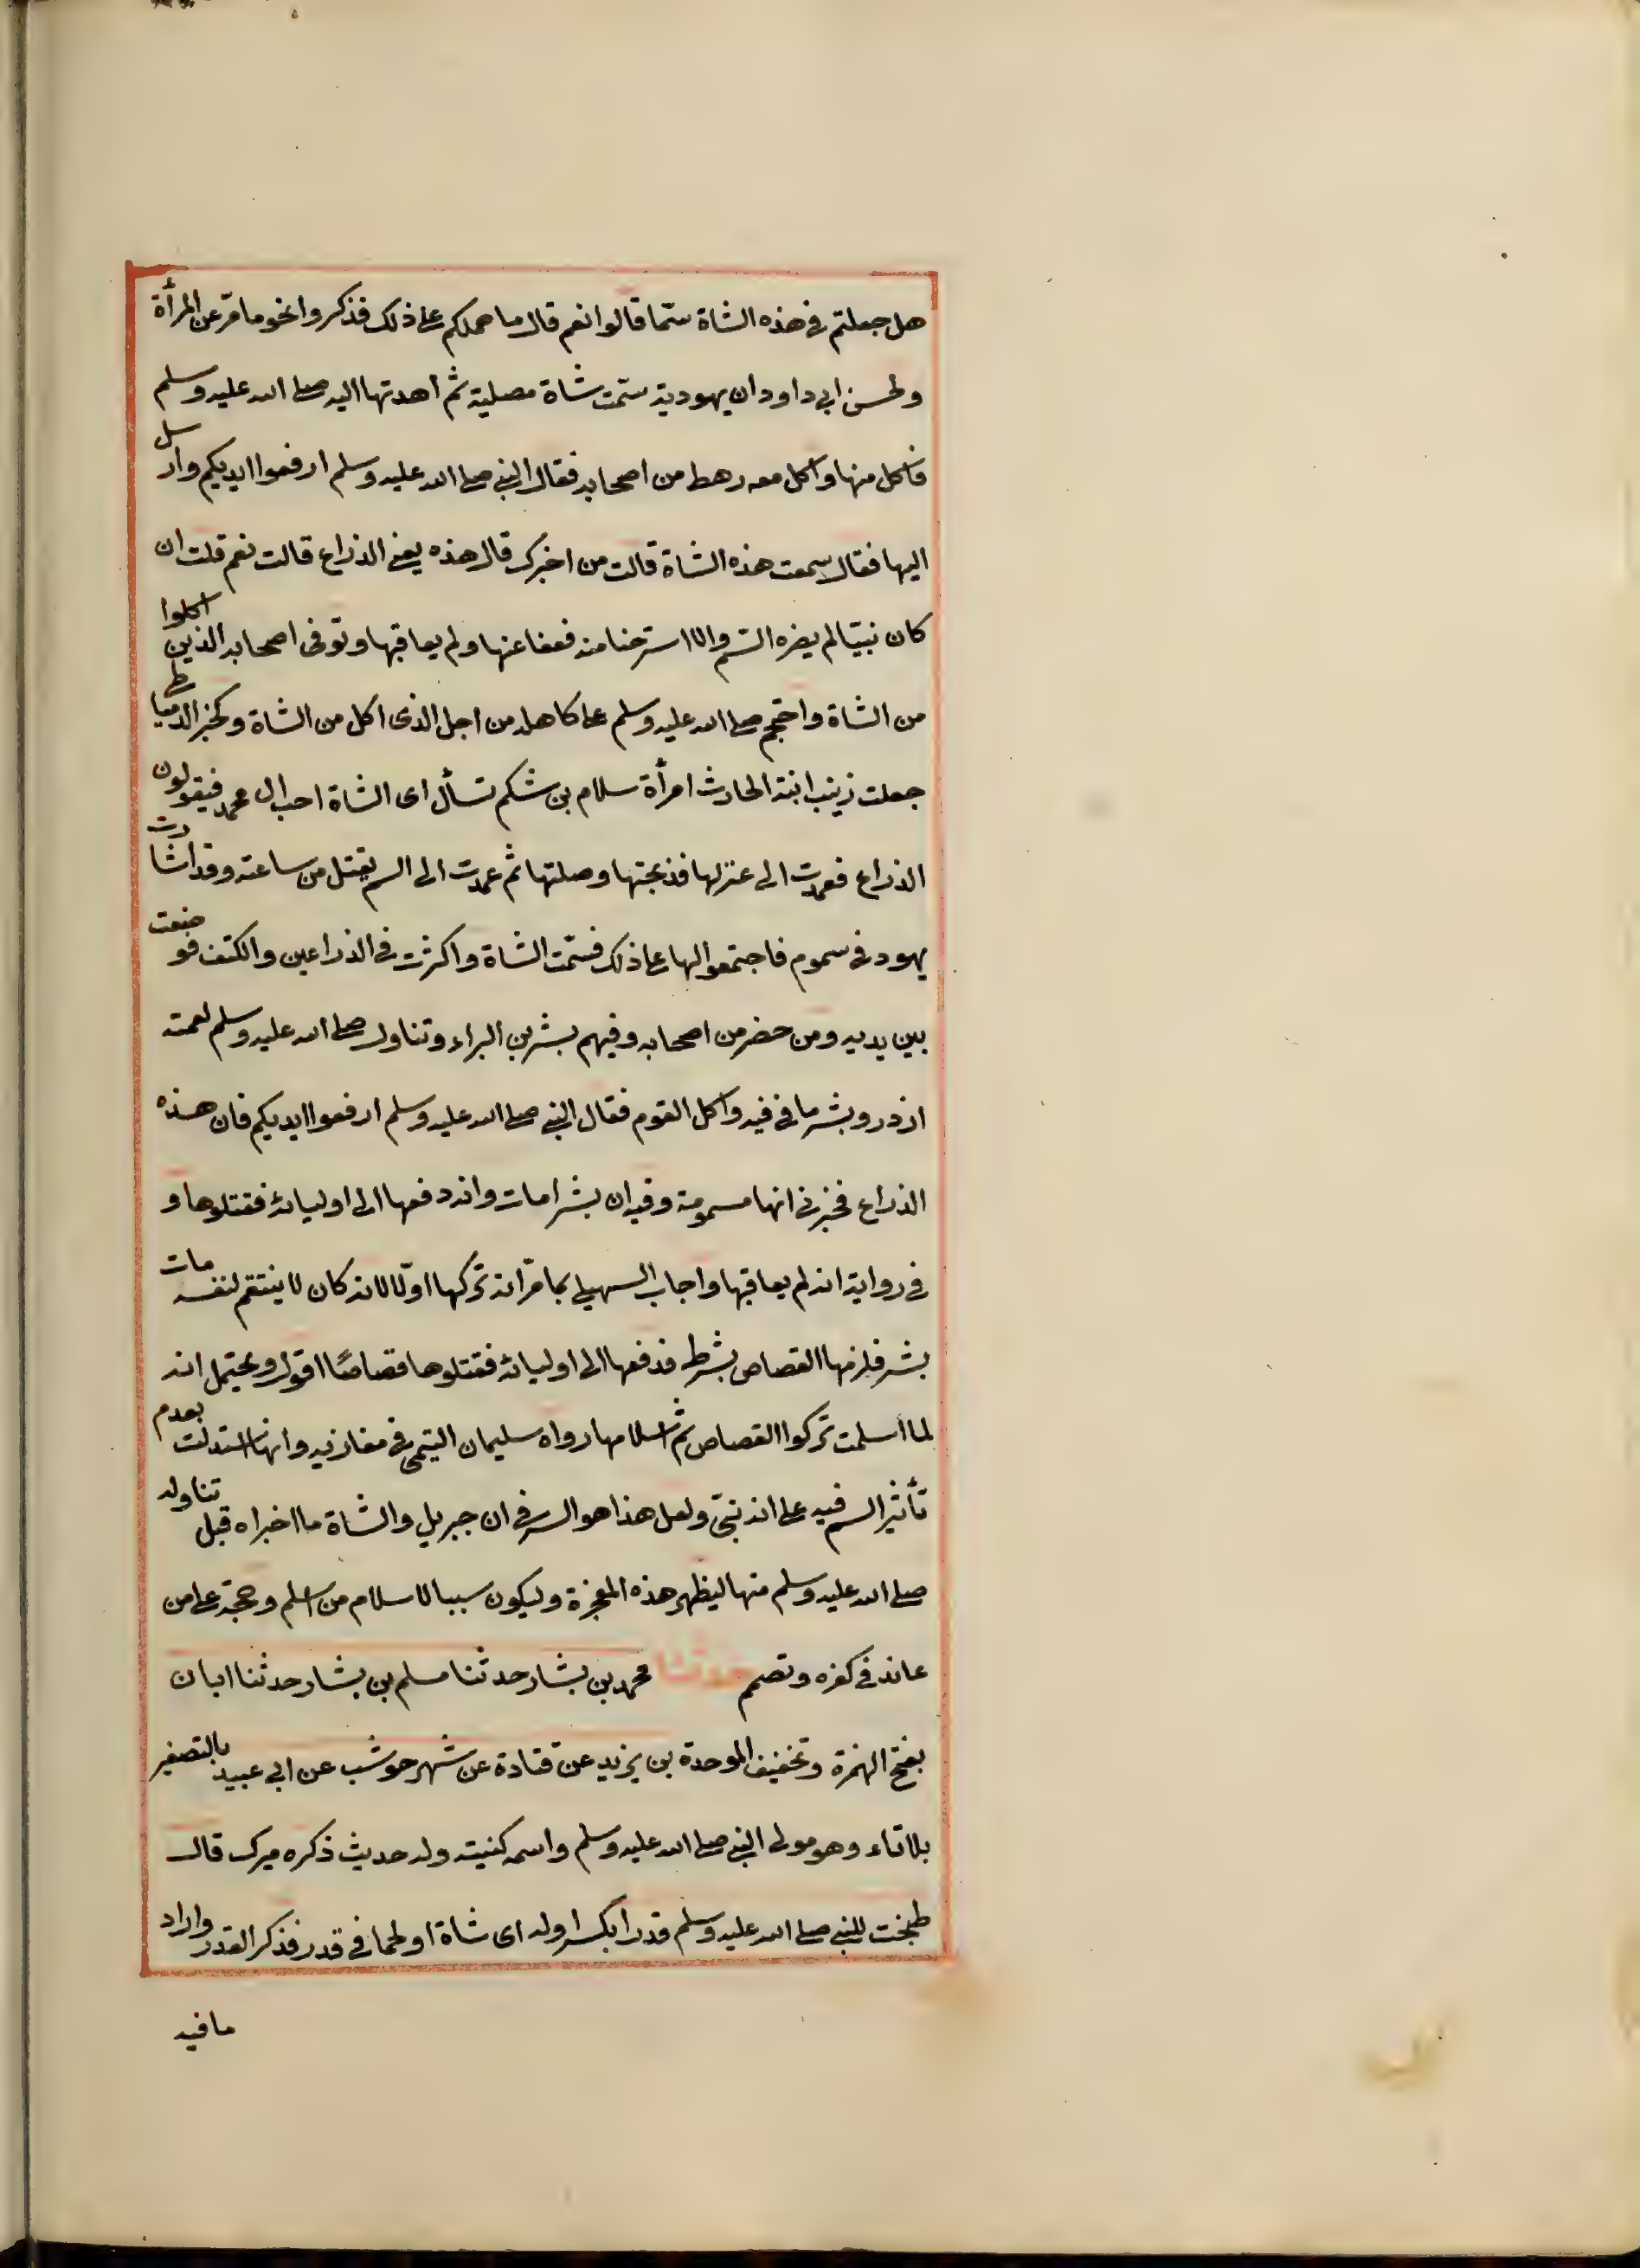 هل جعلتم في هذه الشاة سمّا قالوا نعم قال ما حملكم على ذلك فذكروا نحو ما مرّ عن المرأة
ولحسن ابي داود ان يهودية سمّت شاة مصلية ثم اهدتها اليه صلى الله عليه وسلم
فاكل منها واكل معه رهط من اصحابه فقال النبي صلى الله عليه وسلم ارفعوا ايديكم وارسل
اليها فقال سممت هذه الشاة قالت من اخبرك قال هذه يعني الذراع قالت نعم قلت ان
كان نبيّا لم يضره السّم والا استرحنا منه فعفا عنها ولم يعاقبها وتوفى اصحابه الذين اكلوا
من الشاة واحتجم صلى الله عليه وسلم على كاهله من اجل الذى اكل من الشاة وكخبر الدمياطي
جعلت زينب ابنة الحارث امرأة سلام بن شكم تسأل اى الشاة احب الى محمد فيقولون
الذراع فعمدت الى عنزلها فذبحتها وصلتها ثم عمدت الى السم يقتل من ساعته وقد اشارت
يهود في سموم فاجتمعوا لها على ذلك فسمّت الشاة واكثرت في الذراعين والكتف فوضعت
بين يديه ومن حضر من اصحابه وفيهم بشر بن البراء وتناول صلى الله عليه وسلم لعمته
ازدرد وبشر ما في فيه واكل القوم فقال النبي صلى الله عليه وسلم ارفعوا ايديكم فان هذه
الذراع تخبرني انها مسمومة وفيه ان بشرا مات وانه دفعها الى اوليائه فقتلوها و
في رواية انه لم يعاقبها واجاب السهيلي بما مرّ انه تركها اولّا لانه كان لا ينتقم لنفسه مات
بشر فلزمها القصاص بشرطه فدفعها الى اوليائه فقتلوها قصاصًا اقول ويحتمل انه
لما اسلمت تركوا القصاص ثم اسلامها رواه سليمان التيمى في مغازيه وانها استدلت بعدم
تأثير السم فيه على انه نبيّ ولعل هذا هو السر في ان جبريل والشاة ما اخبراه قبل تناوله
صلى الله عليه وسلم منها ليظهر هذه المعجزة وليكون سببا لاسلام من اسلم وحجة على من
عاند في كفره وتصمم حدثنا محمد بن بشار حدثنا مسلم بن بشار حدثنا ابان
بفتح الهمزة وتخفيف الموحدة بن يزيد عن قتادة عن شهر حوشب عن ابي عبيد بالتصغير
بلا تاء وهو مولى النبي صلى الله عليه وسلم واسمه كنيته وله حديث ذكره ميرك قال
طبخت للنبي صلى الله عليه وسلم قدرا بكسر اوله اى شاة او لحما في قدر فذكر القدر واراد
ما فيه